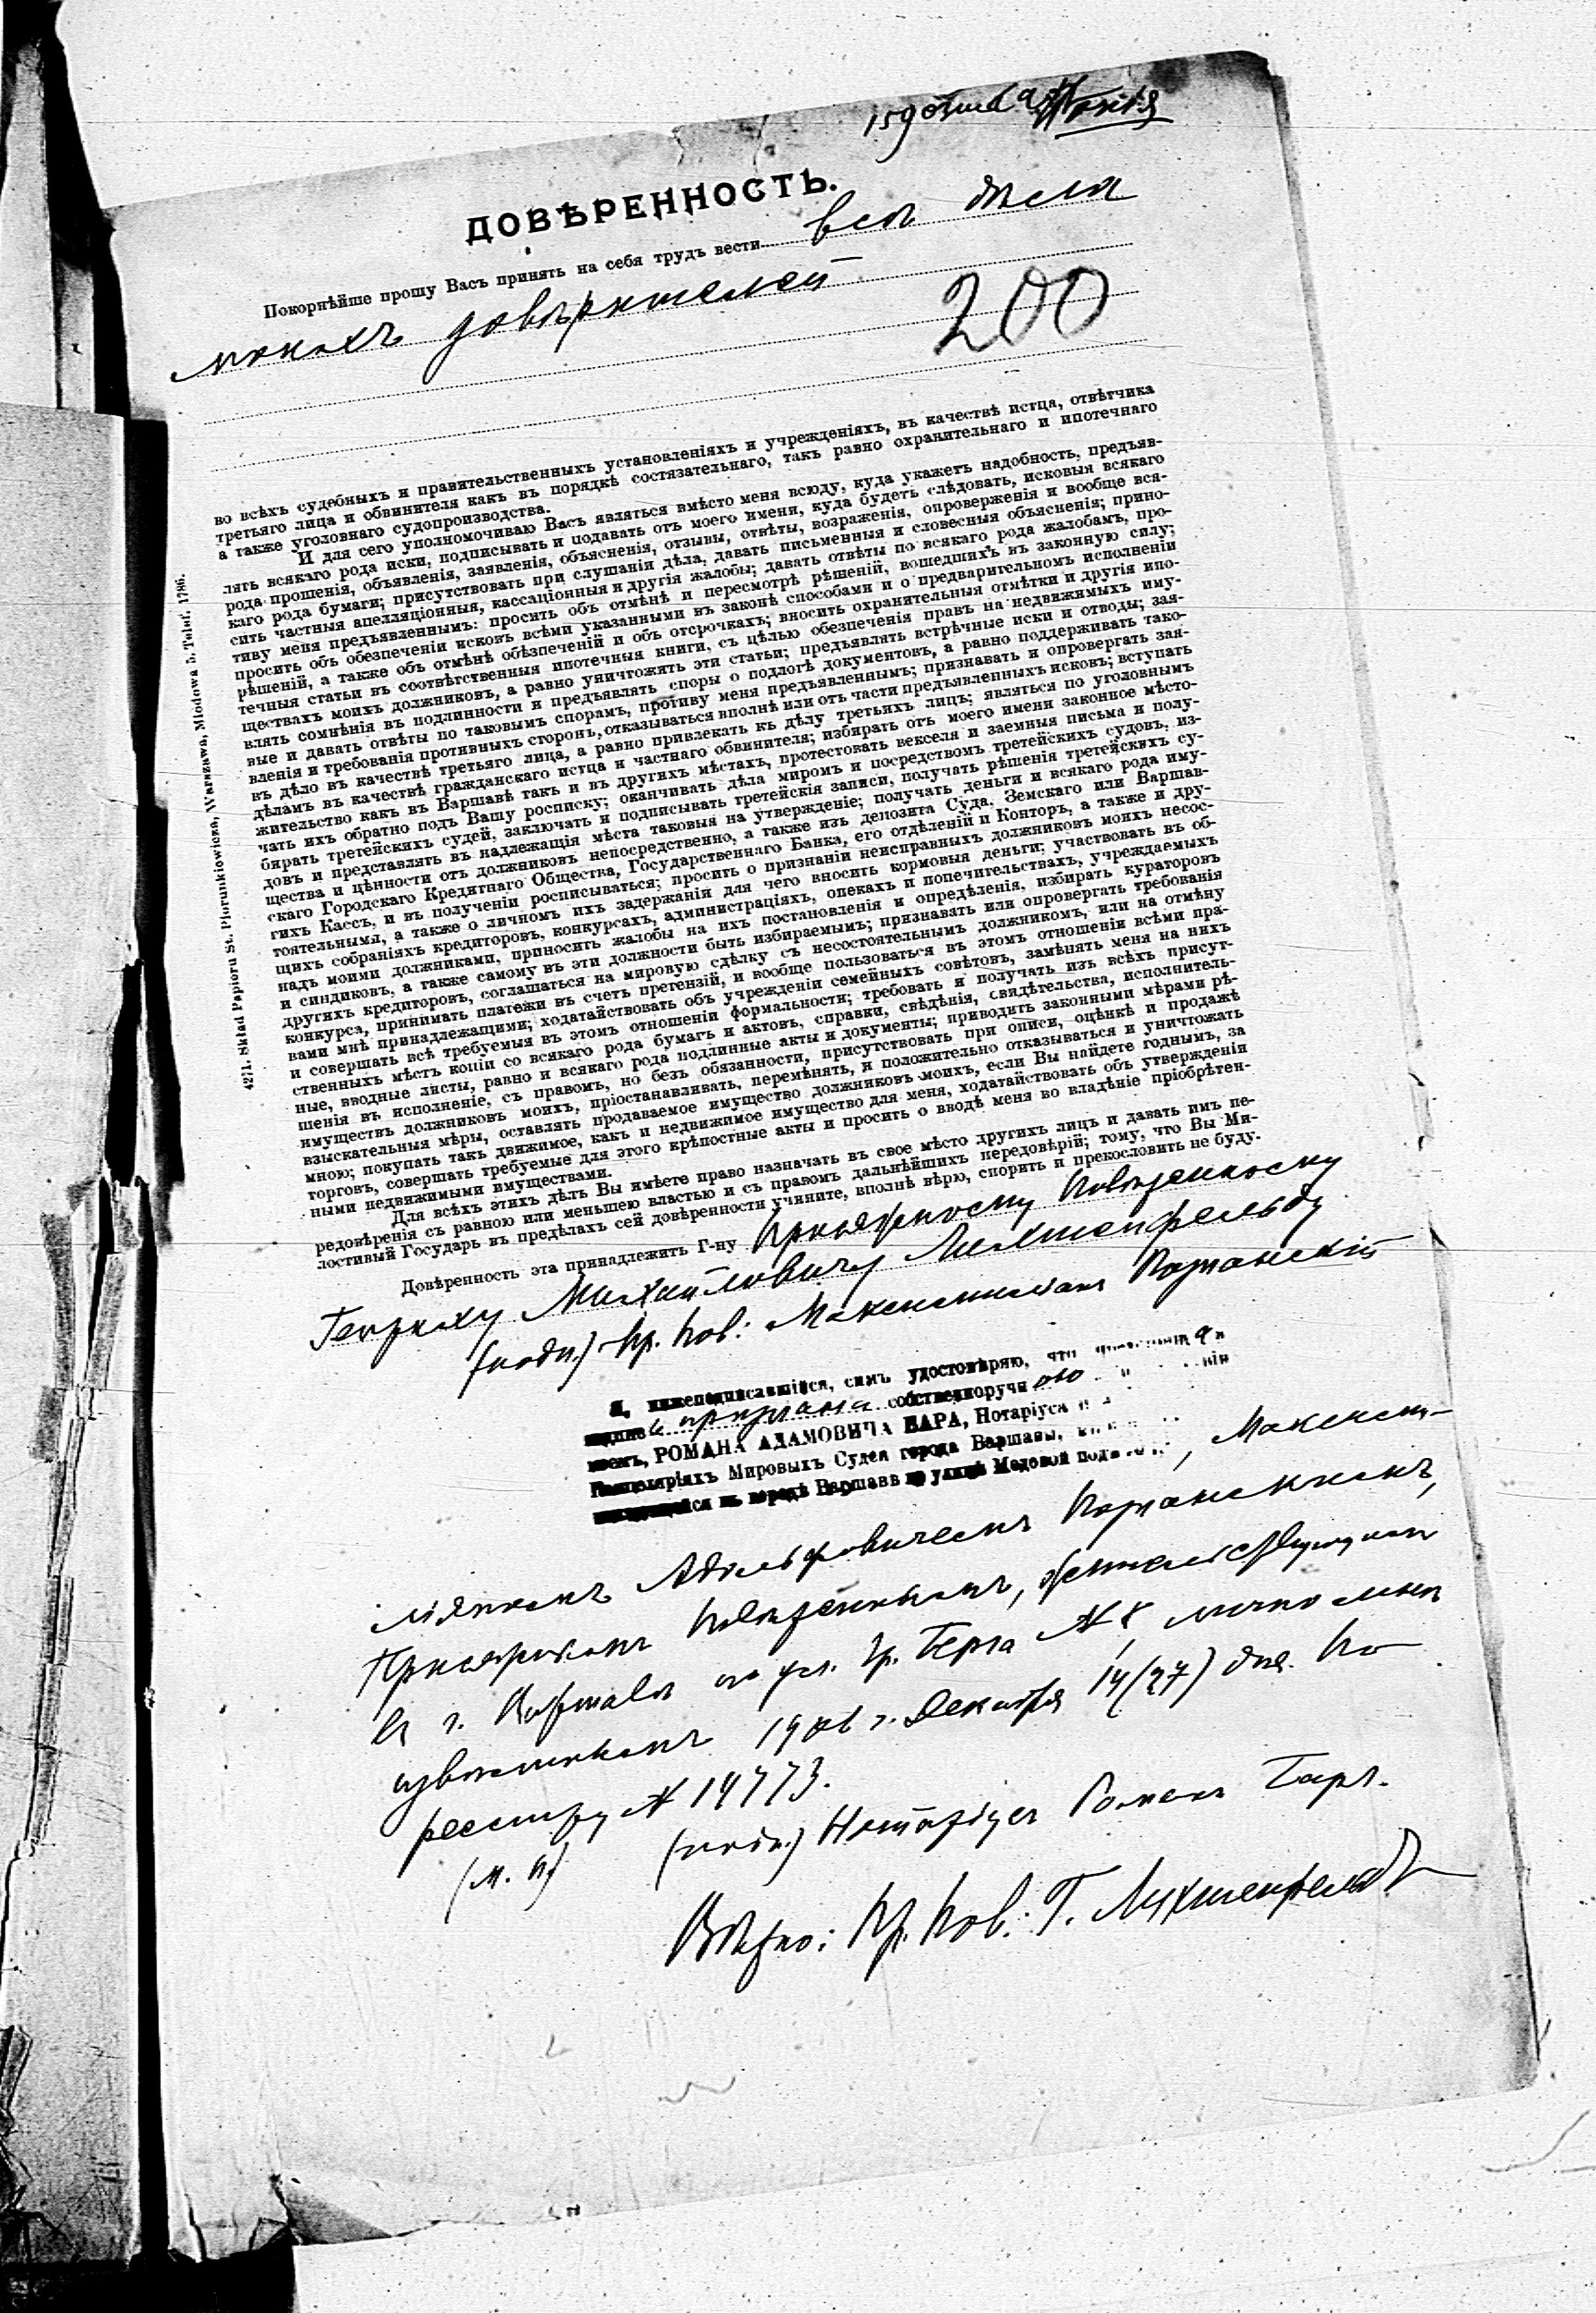 ДОВѢРЕННОСТЬ.
Покорнѣйше прошу Васъ принять на себя трудъ вести всѣ дѣла
моихъ довѣрителей
200
во всѣхъ судебныхъ и правительственныхъ установленіяхъ и учрежденіяхъ, въ качествѣ истца, отвѣтчика
третьяго лица и обвинителя какъ въ порядкѣ состязательнаго, такъ равно охранительнаго и ипотечнаго
а также уголовнаго судопроизводства.
И для сего уполномочиваю Васъ являться вмѣсто меня всюду, куда укажетъ надобность, предъяв-
лять всякаго рода иски, подписывать и подавать отъ моего имени, куда будетъ слѣдовать, исковыя всякаго
рода прошенія, объявленія, заявленія, объясненія, отзывы, отвѣты, возраженія, опроверженія и вообще вся-
каго рода бумаги; присутствовать при слушаніи дѣла, давать письменныя и словесныя объясненія; прино-
сить частныя апелляціонныя, кассаціонныя и другія жалобы; давать отвѣты по всякаго рода жалобамъ, про-
тиву меня предъявленнымъ: просить объ отмѣнѣ и пересмотрѣ рѣшеній, вошедшихъ въ законную силу;
просить объ обезпеченіи исковъ всѣми указанными въ законѣ способами и о предварительномъ исполненіи
рѣшеній, а также объ отмѣнѣ обезпеченій и объ отсрочкахъ; вносить охранительныя отмѣтки и другія ипо-
течныя статьи въ соотвѣтственныя ипотечныя книги, съ цѣлью обезпеченія правъ на недвижимыхъ иму-
ществахъ моихъ должниковъ, а равно уничтожить эти статьи; предъявлять встрѣчные иски и отводы; зая-
влять сомнѣнія въ подлинности и предъявлять споры о подлогѣ документовъ, а равно поддерживать тако-
вые и давать отвѣты по таковымъ спорамъ, противу меня предъявленнымъ; признавать и опровергать зая-
вленія и требованія противныхъ сторонъ, отказываться вполнѣ или отъ части предъявленныхъ исковъ; вступать
въ дѣло въ качествѣ третьяго лица, а равно привлекать къ дѣлу третьихъ лицъ; являться по уголовнымъ
дѣламъ въ качествѣ гражданскаго истца и частнаго обвинителя; избирать отъ моего имени законное мѣсто-
жительство какъ въ Варшавѣ такъ и въ другихъ мѣстахъ, протестовать векселя и заемныя письма и полу-
чать ихъ обратно подъ Вашу росписку; оканчивать дѣла миромъ и посредствомъ третейскихъ судовъ, из-
бирать третейскихъ судей, заключать и подписывать третейскія записи, получать рѣшенія третейскихъ су-
довъ и представлять въ надлежащія мѣста таковыя на утвержденіе; получать деньги и всякаго рода иму-
щества и цѣнности отъ должниковъ непосредственно, а также изъ депозита Суда, Земскаго или Варшав-
скаго Городскаго Кредитнаго Общества, Государственнаго Банка, его отдѣленій и Конторъ, а также и дру-
гихъ Кассъ, и въ полученіи росписываться; просить о признаніи неисправныхъ должниковъ моихъ несос-
тоятельными, а также о личномъ ихъ задержанія для чего вносить кормовыя деньги; участвовать въ об-
щихъ собраніяхъ кредиторовъ, конкурсахъ, администраціяхъ, опекахъ и попечительствахъ, учреждаемыхъ
надъ моими должниками, приносить жалобы на ихъ постановленія и опредѣленія, избирать кураторовъ
и синдиковъ, а также самому въ эти должности быть избираемымъ; признавать или опровергать требованія
другихъ кредиторовъ, соглашаться на мировую сдѣлку съ несостоятельнымъ должникомъ, или на отмѣну
конкурса, принимать платежи въ счетъ претензій, и вообще пользоваться въ этомъ отношеніи всѣми пра-
вами мнѣ принадлежащими; ходатайствовать объ учрежденіи семейныхъ совѣтовъ, замѣнять меня на нихъ
и совершать всѣ требуемыя въ этомъ отношеніи формальности; требовать и получать изъ всѣхъ присут-
ственныхъ мѣстъ копіи со всякаго рода бумагъ и актовъ, справки, свѣдѣнія, свидѣтельства, исполнитель-
ные, вводные листы, равно и всякаго рода подлинные акты и документы; приводить законными мѣрами рѣ-
шенія въ исполненіе, съ правомъ, но безъ обязанности, присутствовать при описи, оцѣнкѣ и продажѣ
имуществъ должниковъ моихъ, пріостанавливать, перемѣнять, и положительно отказываться и уничтожать
взыскательныя мѣры, оставлять продаваемое имущество должниковъ моихъ, если Вы найдете годнымъ, за
мною; покупать такъ движимое, какъ и недвижимое имущество для меня, ходатайствовать объ утвержденіи
торговъ, совершать требуемые для этого крѣпостные акты и просить о вводѣ меня во владѣніе пріобрѣтен-
ными недвижимыми имуществами.
Для всѣхъ этихъ дѣлъ Вы имѣете право назначать въ свое мѣсто другихъ лицъ и давать имъ пе-
редовѣренія съ равною или меньшею властью и съ правомъ дальнѣйшихъ передовѣрій; тому, что Вы Ми-
лостивый Государь въ предѣлахъ сей довѣренности учините, вполнѣ вѣрю, спорить и прекословить не буду.
Довѣренность эта принадлежитъ Г-ну Присяжному Повѣренному
Генриху Михайловичу Лихтенфельду
(подп.) Пр. Пов: Максимиліанъ Познанскій
Я, нижеподписавшійся, симъ удостовѣряю, что
признана собственноручно
РОМАНА АДАМОВИЧА БАРА, Нотаріуса
Канцеляріяхъ Мировыхъ Судей города Варшавы,
въ городѣ Варшавѣ по улицѣ Медовой подъ , Максими-
ліяномъ Адольфовичемъ Познанскимъ,
Присяжнымъ Повѣреннымъ, жительствующимъ
въ г. Варшавѣ по ул. Гр. Берга № 8, лично мнѣ
извѣстнымъ 1906 г. Декабря 14 (27) дня. По
реестру № 14773.
(м. п.) (подп.) Нотаріусъ Романъ Баръ.
Вѣрно: Пр. Пов.: Г. Лихтенфельдъ
4271. Skład Papieru St. Piorunkiewicza, Warszawa, Miodowa 5. Telef. 1786.